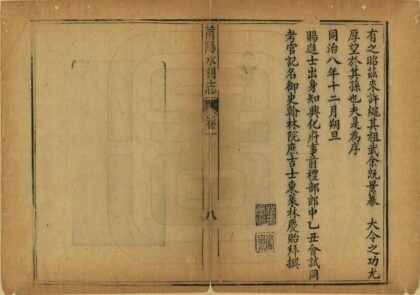 有之昭茲來許繩其祖武余旣景慕　大令之功尤
厚望於其孫也夫是為序
同治八年十二月朔旦
賜進士出身知興化府事前禮部郎中乙丑會試同
考官記名御史翰林院庶吉士東萊林慶貽拜撰
莆陽水利志
八